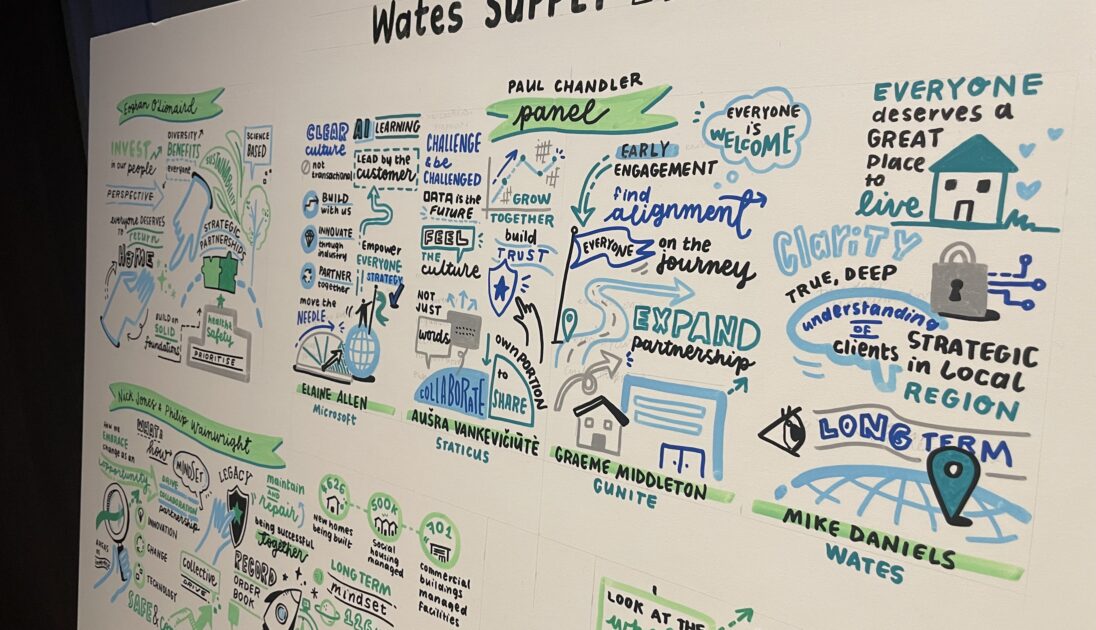 Wates SUPPLY
Eoghan O'Lionaird
INVEST
in our people
DIVERSITY
BENEFITS
everyone
SCIENCE
BASED
SUSTAINABILITY
PERSPECTIVE
everyone DESERVES
to return
HOME
STRATEGIC
PARTNERSHIPS
BUILD on
SOLID
foundations
health
Safety
PRIORITISE
PAUL CHANDLER
panel
CLEAR
culture
AI LEARNING
not
transactional
LEAD by the
customer
BUILD
with us
INNOVATE
through
industry
PARTNER
together
Empower
EVERYONE
STRATEGY
move the
NEEDLE
ELAINE ALLEN
Microsoft
CHALLENGE
& be
CHALLENGED
DATA is the
FUTURE
FEEL
THE
culture
NOT
JUST
words
COLLABORATE
GROW
TOGETHER
build
TRUST
OWN PORTION
to
SHARE
AUŠRA VANKEVIČIŪTĖ
STATICUS
EVERYONE
is
WELCOME
EARLY
ENGAGEMENT
find
alignment
EVERYONE
on the
journey
EXPAND
partnership
GRAEME MIDDLETON
GUNITE
EVERYONE
deserves a
GREAT
place
to
live
CLARITY
TRUE, DEEP
understanding
OF
clients
STRATEGIC
in Local
REGION
LONG TERM
MIKE DANIELS
WATES
Nick Jones & Philip Wainwright
HOW WE
EMBRACE
change as an
opportunity
WHAT &
how
MINDSET
DRIVE
COLLABORATION
partnership
LEGACY
maintain
AND
repair
being successful
together
INNOVATION
CHANGE
TECHNOLOGY
collective
DRIVE
RECORD
ORDER
BOOK
4626
New homes
being built
500K
Social
housing
managed
701
Commercial
buildings
managed
facilities
LONG TERM
mindset
SAFE &
LOOK AT THE